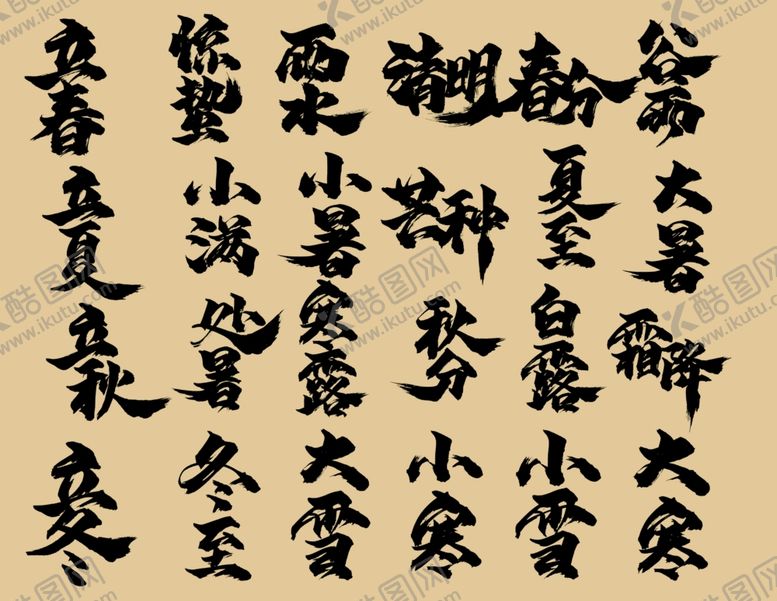 立春
惊蛰
雨水
清明
春分
谷雨
立夏
小满
小暑
芒种
夏至
大暑
立秋
处暑
寒露
秋分
白露
霜降
立冬
冬至
大雪
小寒
小雪
大寒
酷图网
www.ikutu.com
酷图网
www.ikutu.com
酷图网
www.ikutu.com